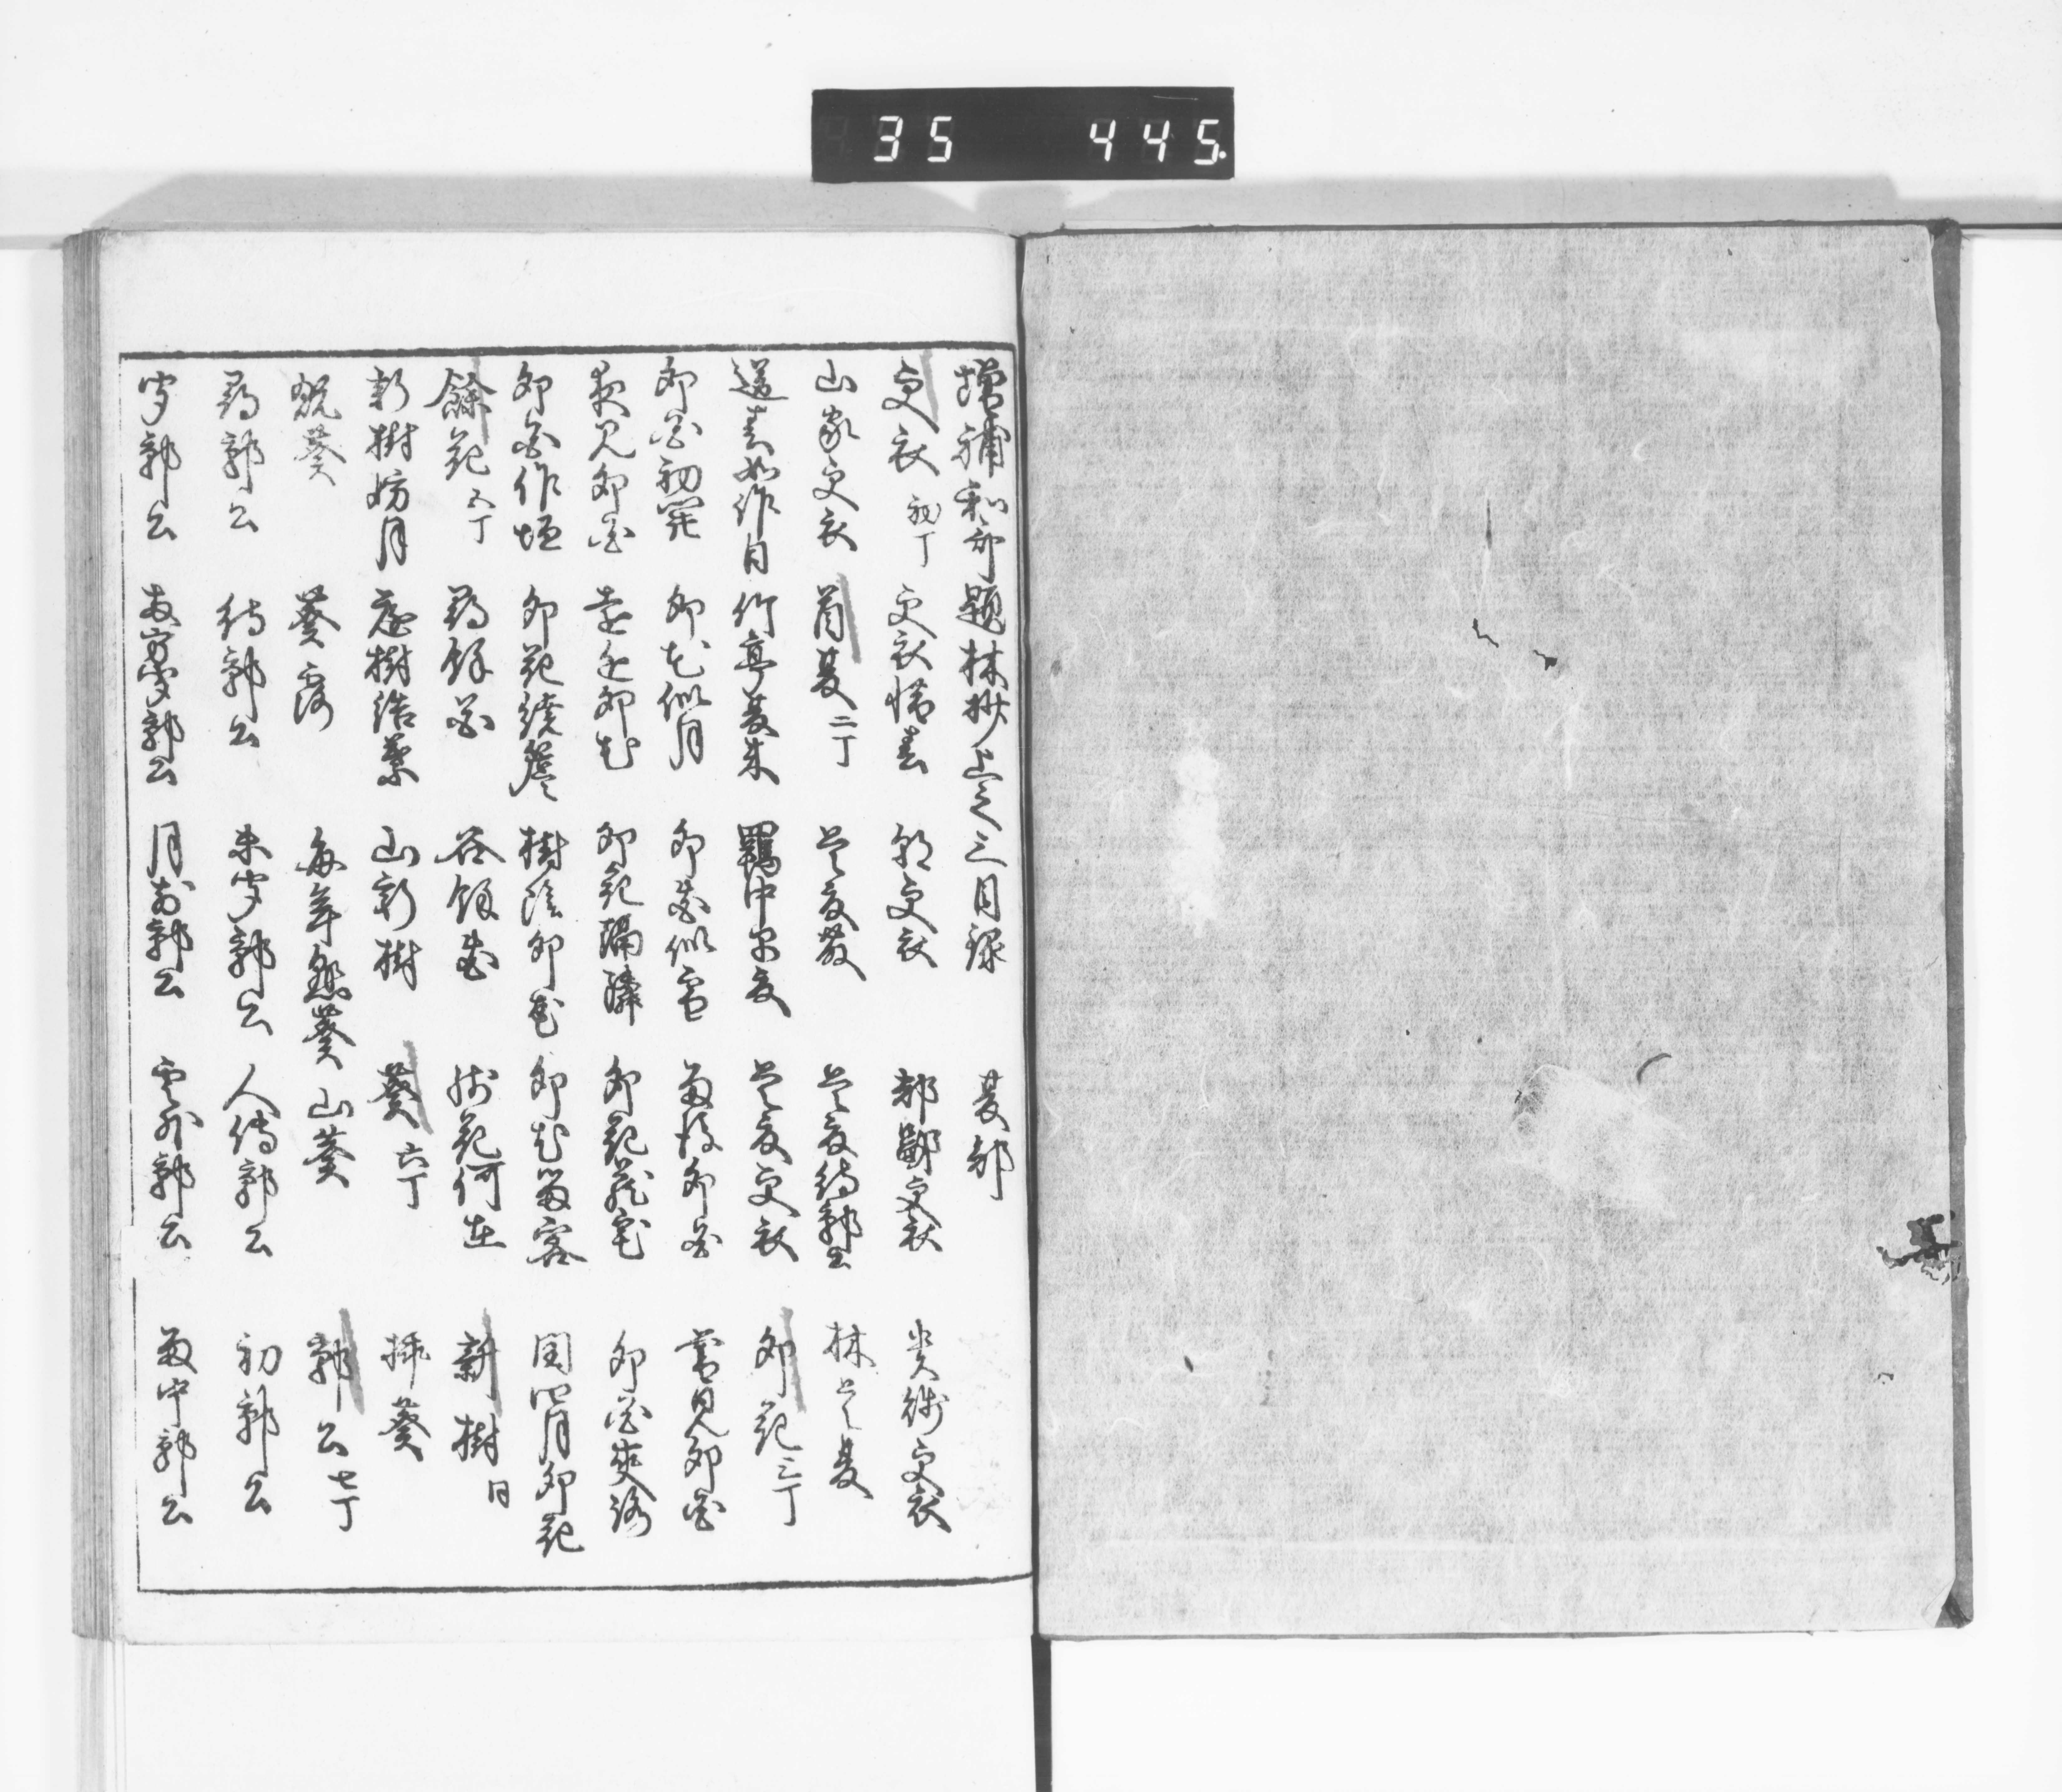 35 445.
増補和哥題林抄上之三目録 夏部
更衣 初丁 更衣惜春 朝更衣 都鄙更衣 貴賤更衣
山家更衣 首夏 二丁 首夏藤 首夏待郭公 林首夏
送春如昨日 竹亭夏来 羇中首夏 首夏更衣 卯花 三丁
卯花初開 卯花似月 卯花似雪 卯花
夜見卯花 遠近卯花 卯花隔隣 卯花
卯花作垣 卯花繞簷 樹陰卯花 卯花留客 閏四月卯花
餘花 五丁 尋餘花 谷餘花 残花何在 新樹 同
新樹妨月 庭樹結葉 山新樹 葵 六丁 挿葵
葵 葵露 毎年懸葵 山葵 郭公 七丁
尋郭公 待郭公 未聞郭公 人伝郭公 初郭公
聞郭公 郭公 月前郭公 雲外郭公 雨中郭公